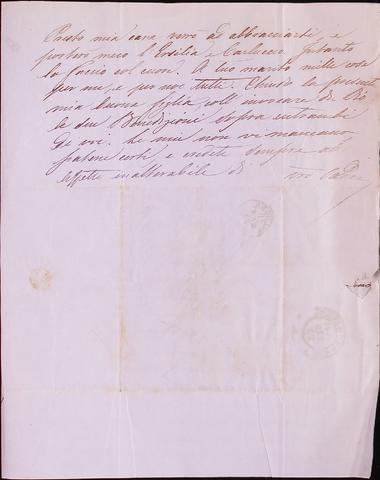 Presto mia cara verrò ad abbracciarti, e
porterò meco l'Ersilia e Carluccio. Intanto
lo faccio col cuore. A tuo marito mille cose
per me, e per noi tutti. Chiudo la presente
mia buona figlia coll'invocare da Dio
le sue Benedizioni sopra entrambi
di voi. Le mie non vi mancano,
siatene certi, e credete sempre all'
affetto inalterabile di vro Padre